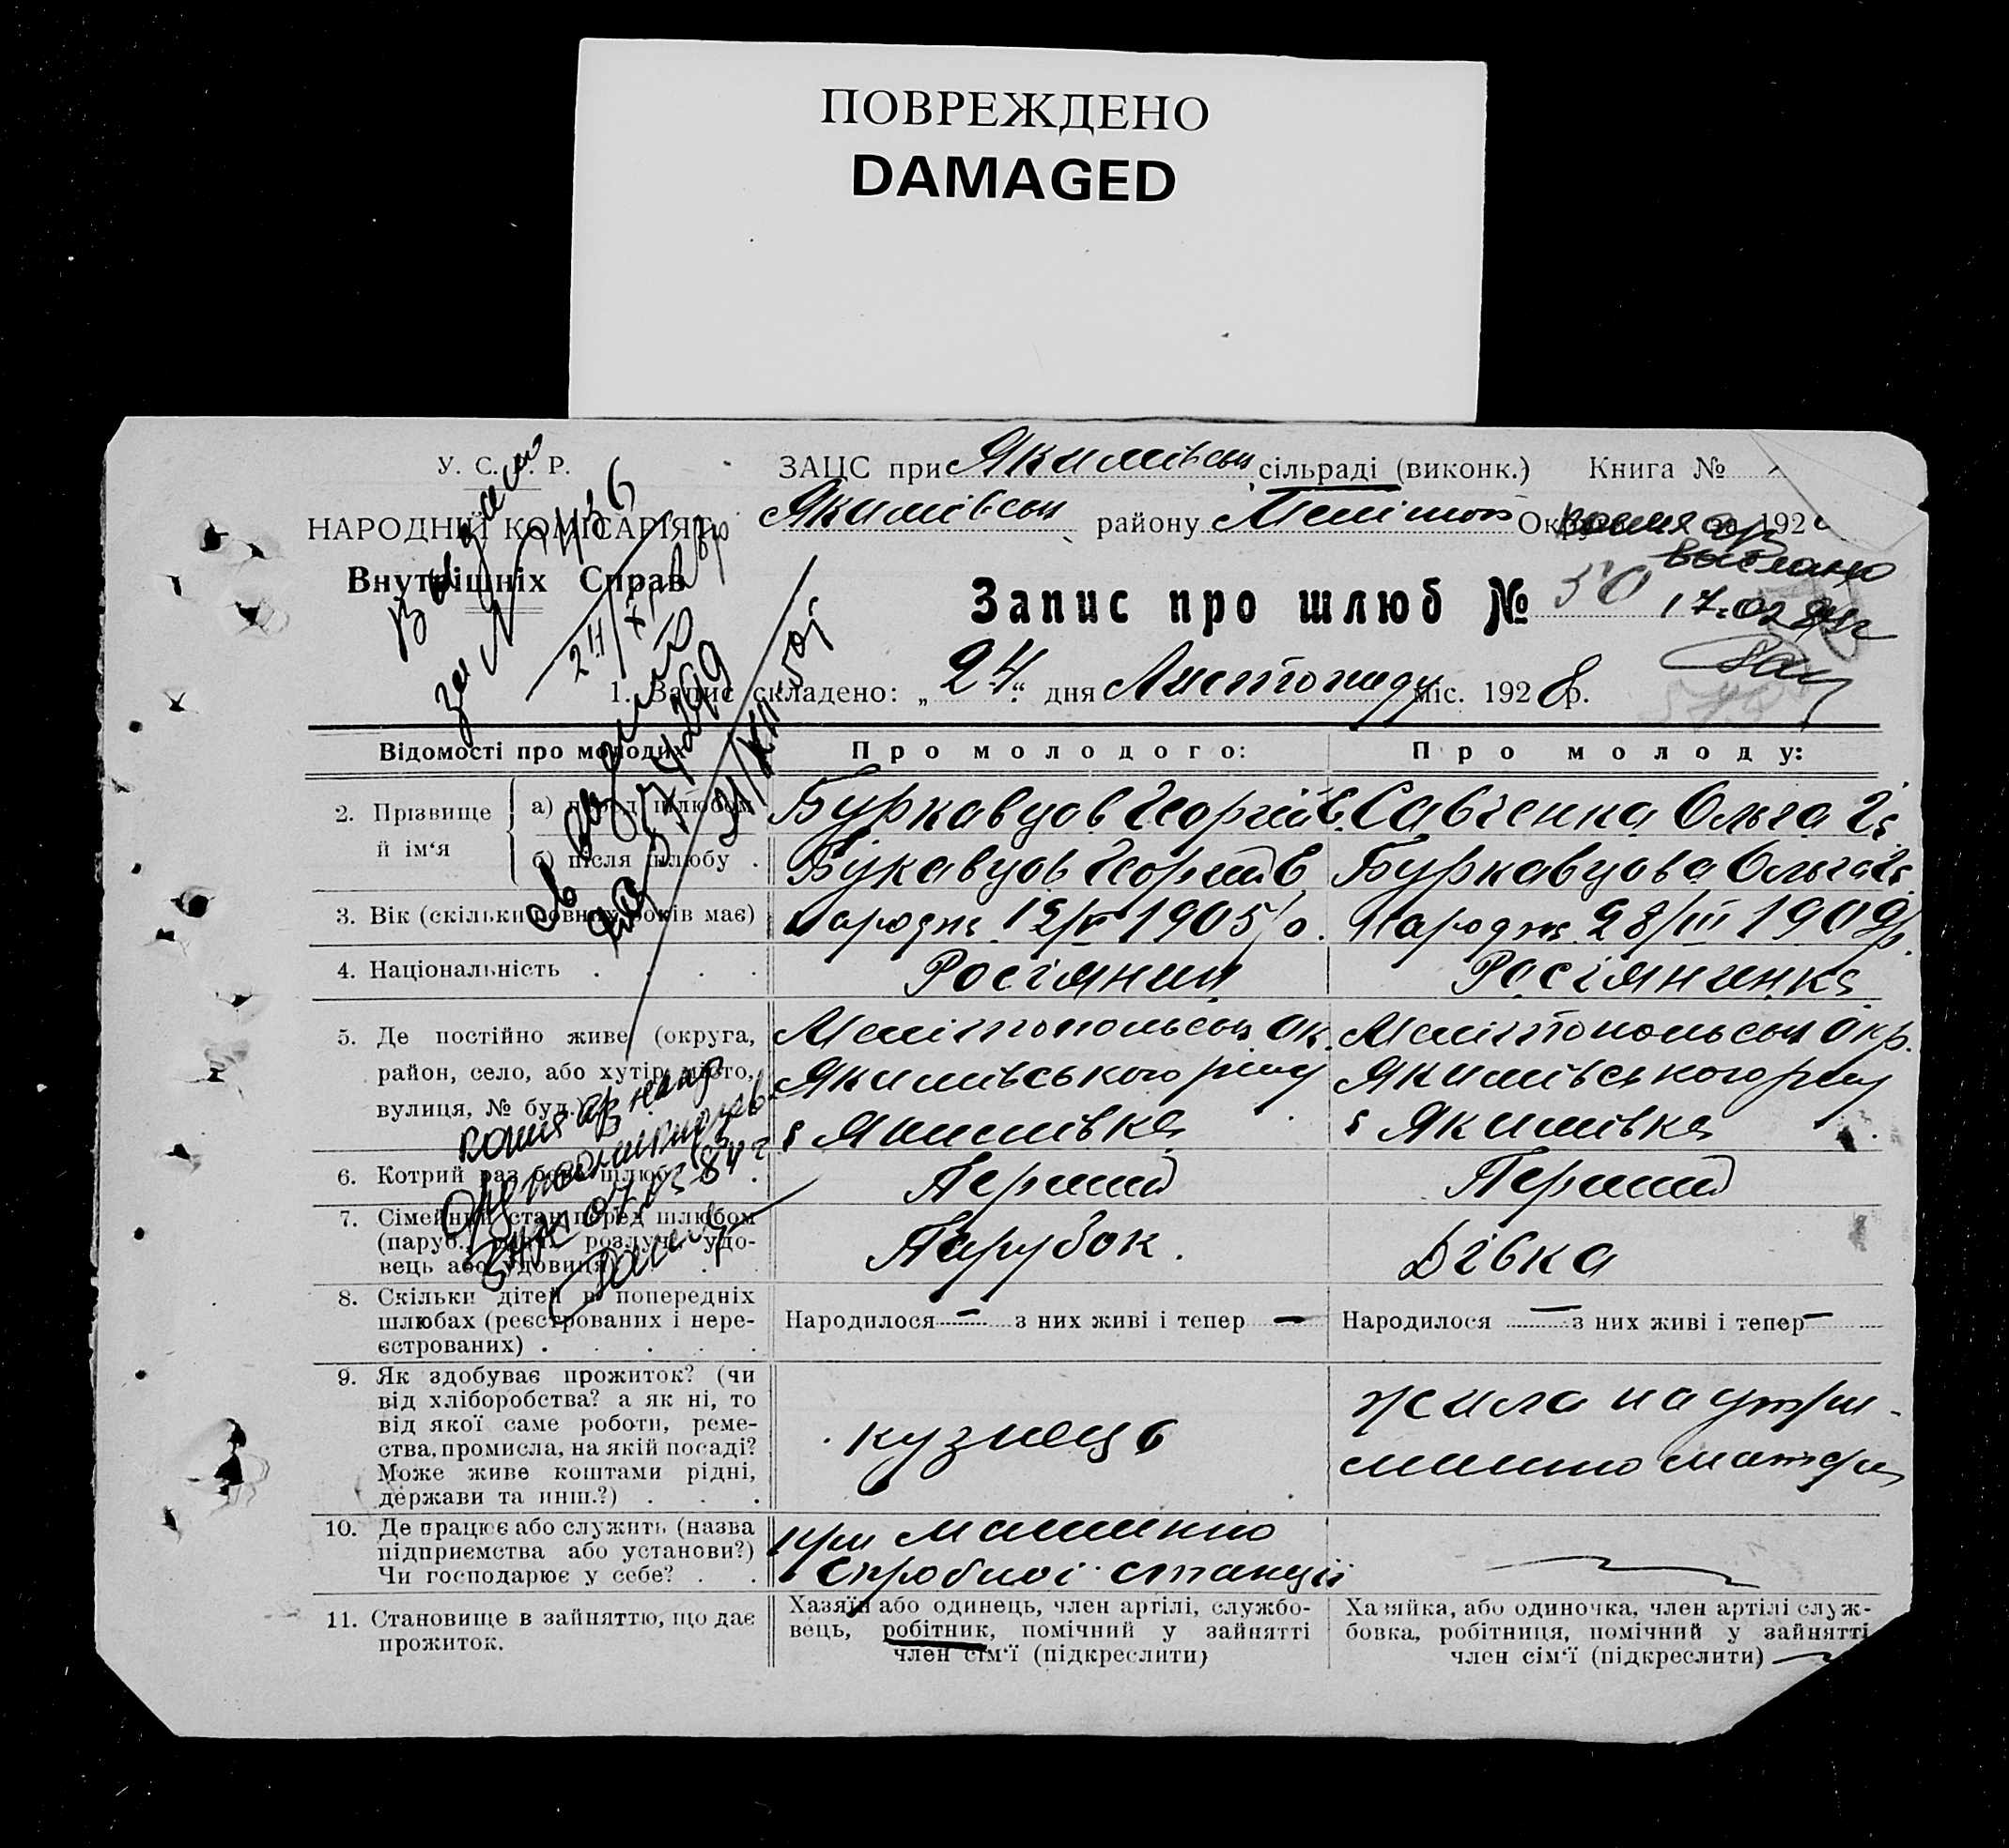 ПОВРЕЖДЕНО
DAMAGED
У. С. Р. Р.
НАРОДНІЙ КОМІСАРІЯТ
Внутрішніх Справ
ЗАЦС при Якимівськ сільраді (виконк.) Книга №
Якимівськ району Меліт Окр 192
Запис про шлюб № 50
17.02
1. Запис складено: „24“ дня Листопаду міс. 1928 р.
Видано
за № 436
Відомості про молодих
Про молодого:
Про молоду:
2. Прізвище й ім‘я
а) перед шлюбом
Буркавцов Георгій Є.
Савченка Ольга Ів
б) після шлюбу .
Букавцов Георгій Є
Буркавцова Ольга Ів
3. Вік (скільки повних років має)
народж. 1905 р.
Народж. 28/III 1909 р.
4. Національність . . . .
Росіянин
Росіянинка
5. Де постійно живе (округа,
район, село, або хутір, місто,
вулиця, № буд.)
Мелітопольськ Ок.
Якимівського р-ну
с Якимівка
Мелітопольськ Окр.
Якимівського р-ну
с Якимівка
6. Котрий раз бере шлюб? .
Перший
Перший
7. Сімейний стан перед шлюбом
(паруб., розлуч., удо-
вець або удовиця)
Парубок.
Дівка
8. Скільки дітей в попередніх
шлюбах (реєстрованих і нере-
єстрованих) . . . .
Народилося — з них живі і тепер —
Народилося — з них живі і тепер —
9. Як здобуває прожиток? (чи
від хліборобства? а як ні, то
від якої саме роботи, реме-
ства, промисла, на якій посаді?
Може живе коштами рідні,
держави та инш.?) . . .
кузнець
жила на утри-
манню матери
10. Де працює або служить (назва
підприємства або установи?)
Чи господарює у себе? . .
при машинно
спробної станції
11. Становище в зайняттю, що дає
прожиток.
Хазяїн або одинець, член артілі, службо-
вець, робітник, помічний у зайнятті
член сім‘ї (підкреслити)
Хазяйка, або одиночка, член артілі служ-
бовка, робітниця, помічний у зайнятті
член сім‘ї (підкреслити)